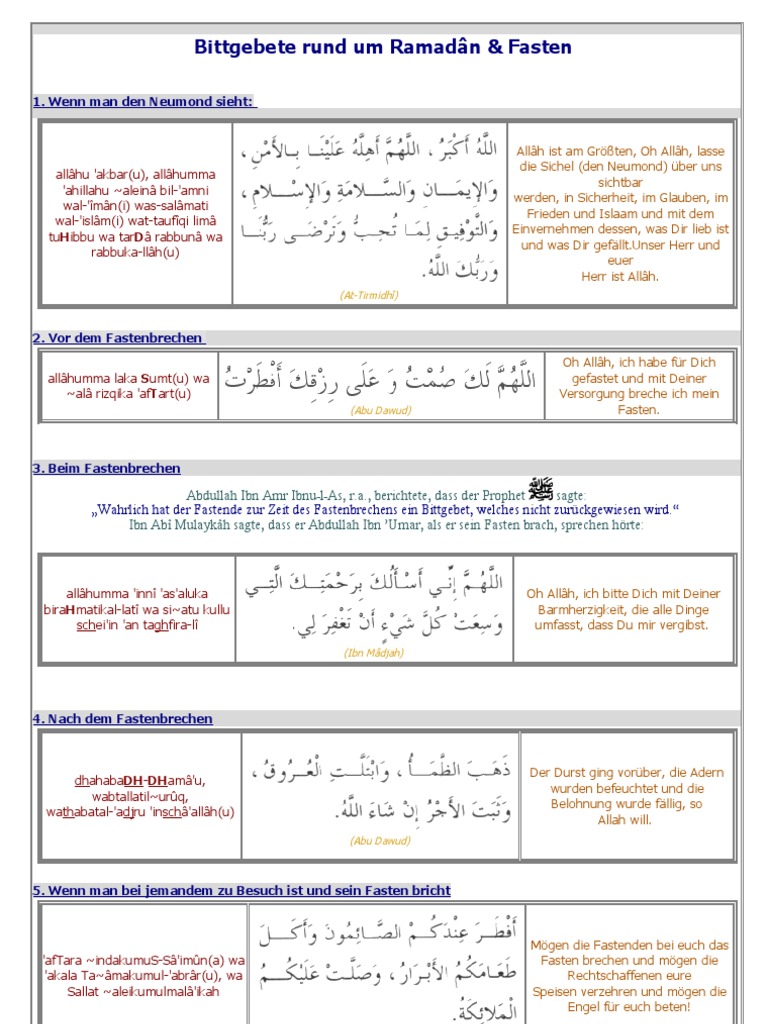 Bittgebete rund um Ramadân & Fasten
1. Wenn man den Neumond sieht:
allâhu 'akbar(u), allâhumma
'ahillahu ~aleinâ bil-'amni
wal-'îmân(i) was-salâmati
wal-'islâm(i) wat-taufîqi limâ
tuHibbu wa tarDâ rabbunâ wa
rabbuka-llâh(u)
اللَّهُ أَكْبَرُ ، اللَّهُمَّ أَهِلَّهُ عَلَيْنَا بِالأَمْنِ ،
وَالإِيمَانِ وَالسَّلامَةِ وَالإِسْلامِ ،
وَالتَّوْفِيقِ لِمَا تُحِبُّ وَتَرْضَى رَبُّنَا
وَرَبُّكَ اللَّهُ.
(At-Tirmidhî)
Allâh ist am Größten, Oh Allâh, lasse
die Sichel (den Neumond) über uns
sichtbar
werden, in Sicherheit, im Glauben, im
Frieden und Islaam und mit dem
Einvernehmen dessen, was Dir lieb ist
und was Dir gefällt.Unser Herr und
euer
Herr ist Allâh.
2. Vor dem Fastenbrechen
allâhumma laka Sumt(u) wa
~alâ rizqika 'afTart(u)
اللَّهُمَّ لَكَ صُمْتُ وَ عَلَى رِزْقِكَ أَفْطَرْتُ
(Abu Dawud)
Oh Allâh, ich habe für Dich
gefastet und mit Deiner
Versorgung breche ich mein
Fasten.
3. Beim Fastenbrechen
Abdullah Ibn Amr Ibnu-l-As, r.a., berichtete, dass der Prophet ﷺ sagte:
„Wahrlich hat der Fastende zur Zeit des Fastenbrechens ein Bittgebet, welches nicht zurückgewiesen wird.“
Ibn Abî Mulaykâh sagte, dass er Abdullah Ibn ’Umar, als er sein Fasten brach, sprechen hörte:
allâhumma 'innî 'as'aluka
biraHmatikal-latî wa si~atu kullu
schei'in 'an taghfira-lî
اللَّهُمَّ إِنِّي أَسْأَلُكَ بِرَحْمَتِكَ الَّتِي
وَسِعَتْ كُلَّ شَيْءٍ أَنْ تَغْفِرَ لِي.
(Ibn Mâdjah)
Oh Allâh, ich bitte Dich mit Deiner
Barmherzigkeit, die alle Dinge
umfasst, dass Du mir vergibst.
4. Nach dem Fastenbrechen
dhahabaDH-DHamâ'u,
wabtallatil~urûq,
wathabatal-'adjru 'inschâ'allâh(u)
ذَهَبَ الظَّمَأُ ، وَابْتَلَّتِ الْعُرُوقُ ،
وَثَبَتَ الأَجْرُ إِنْ شَاءَ اللَّهُ.
(Abu Dawud)
Der Durst ging vorüber, die Adern
wurden befeuchtet und die
Belohnung wurde fällig, so
Allah will.
5. Wenn man bei jemandem zu Besuch ist und sein Fasten bricht
'afTara ~indakumuS-Sâ'imûn(a) wa
'akala Ta~âmakumul-'abrâr(u), wa
Sallat ~aleikumulmalâ'ikah
أَفْطَرَ عِنْدَكُمْ الصَّائِمُونَ وَأَكَلَ
طَعَامَكُمُ الأَبْرَارُ ، وَصَلَّتْ عَلَيْكُمُ
الْمَلائِكَةُ.
Mögen die Fastenden bei euch das
Fasten brechen und mögen die
Rechtschaffenen eure
Speisen verzehren und mögen die
Engel für euch beten!